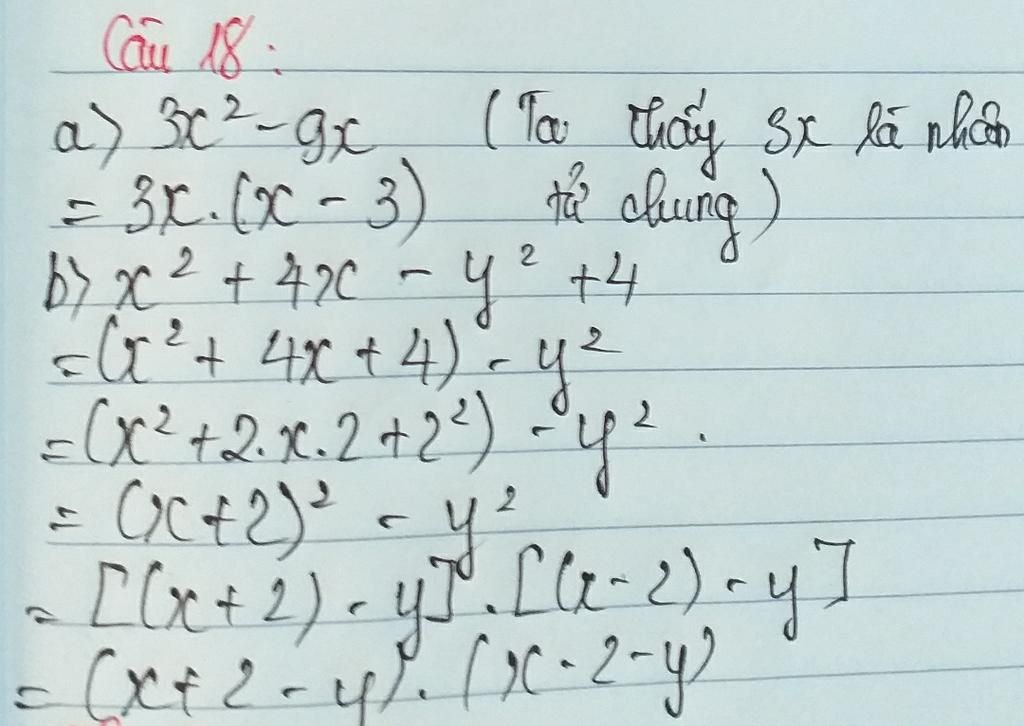 Câu 18:
a) 3x² - 9x (Ta thấy 3x là nhân
= 3x.(x - 3) tử chung)
b) x² + 4x - y² + 4
= (x² + 4x + 4) - y²
= (x² + 2.x.2 + 2²) - y².
= (x+2)² - y²
= [(x+2) - y].[(x-2) - y]
= (x+2-y).(x-2-y)